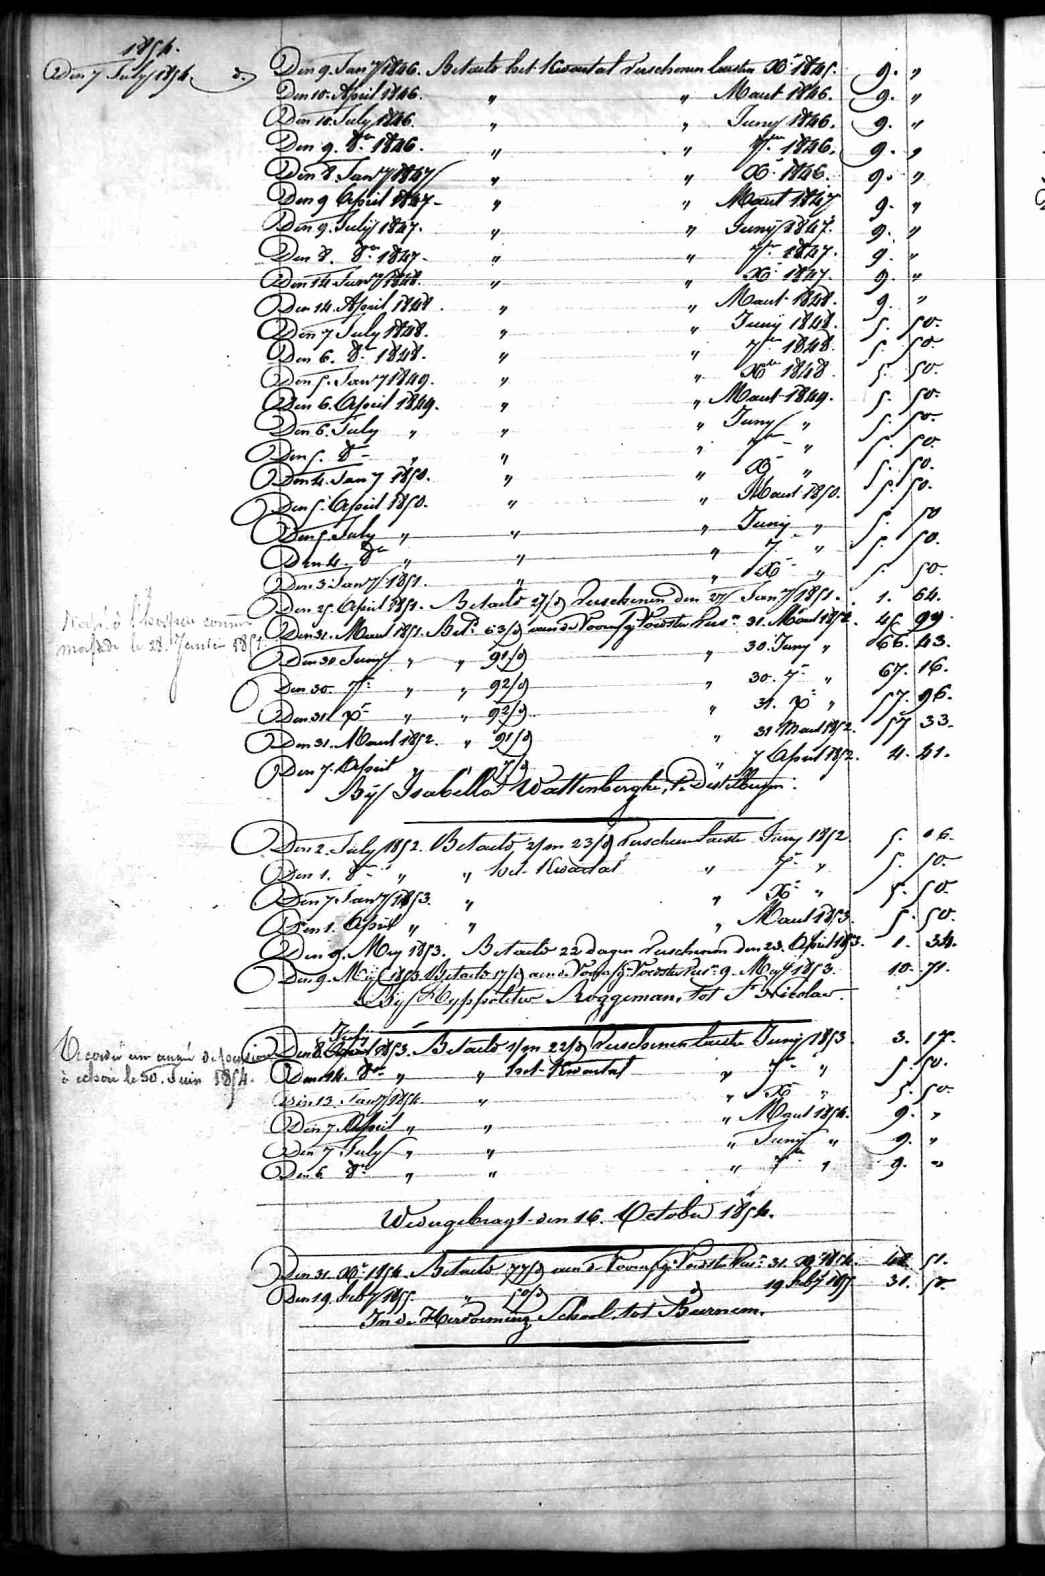 1854.
Den 7 July 1854.
Den 9. Jan^y 1846. Betaald het Kwartal verschenen laasten X^b 1845. 9. "
Den 10. April 1846. " " Maart 1846. 9. "
Den 10. July 1846. " " Juny 1846. 9. "
Den 9. 8^er 1846. " " 7^er 1846. 9. "
Den 8 Jan^y 1847 " " X^r 1846. 9. "
Den 9 April 1847 " " Maart 1847 9. "
Den 9. July 1847. " " Juny 1847. 9. "
Den 8. 8^er 1847 " " 7^er 1847. 9. "
Den 14 Jan^y 1848. " " X^r 1847. 9. "
Den 14. April 1848 " " Maart 1848. 9. "
Den 7 July 1848. " " Juny 1848. 5. 50.
Den 6. 8^er 1848. " " 7^er 1848. 5. 50.
Den 5. Jan^y 1849. " " X^er 1848. 5. 50.
Den 6. April 1849. " " Maart 1849. 5. 50.
Den 6. July " " " Juny " 5. 50.
Den 5. 8^r " " " 7^er " 5. 50.
Den 4. Jan^y 1850. " " X^r " 5. 50.
Den 5. April 1850. " " Maart 1850. 5. 50.
Den 5 July " " " Juny " 5. 50
Den 4. 8^er " " " 7^r " 5. 50.
Den 3 Jan^y 1851. " " X^r " 5. 50.
Den 25. April 1851. Betaald 27/d verschenen den 27 Jan^y 1851. 1. 64.
le 28. Janvier 1851.
Den 31. Maart 1851. Bet^d 63/d aan de Voorz^g Voedster vers^n 31. Maart 1852. 45 99.
Den 30 Juny " " 91/d " 30. Juny " 66. 43.
Den 30. 7^r " " 92/d " 30. 7^r " 67. 16.
Den 31 X^r " " 92/d " 31. X^r " 57. 96.
Den 31. Maart 1852. " 91/d " 31 Maart 1852. 57 33.
Den 7. April " 7/d " 7 April 1852. 4. 41.
Bij Isabella Wattenberghe, te Destelbergen.
Den 2. July 1852. Betaald 2/m 23/d verschenen laaste Juny 1852 5. 06.
Den 1. 8^r " " het Kwartal " 7^r " 5. 50.
Den 7. Jan^y 1853. " " X^r " 5. 50.
Den 1. April " " " Maart 1853. 5. 50.
Den 9. Mey 1853. Betaald 22 dagen verschenen den 23. April 1853. 1. 34.
Den 9. Mey 1853. Betaald 17/d aan de Voorz^g Voedster vers^n 9. Mey 1853. 10. 71.
Bij Hyppolite Roggeman, tot S^t Nicolas.
Accordé une année de pension
à échoir le 30. Juin 1854.
July
Den 8. April 1853. Betaald 1/m 22/d verschenen laaste Juny 1853 3. 17.
Den 14. 8^er " " het Kwartal " 7^r " 5. 50.
Den 13. Jan^y 1854. " " X^r " 5. 50.
Den 7. April " " " Maart 1854. 9. "
Den 7 July " " " Juny " 9. "
Den 6 8^er " " " 7^er " 9. "
Wedergebragt den 16. October 1854.
Den 31. X^r 1854. Betaald 77/d aan de Voorz^g Voedster vers^n 31. X^r 1854. 48. 51.
Den 19. Feb^y 1855. " 50/d " 19 Feb^y 1855 31. 50.
In de Hervorming School, tot Beernem.